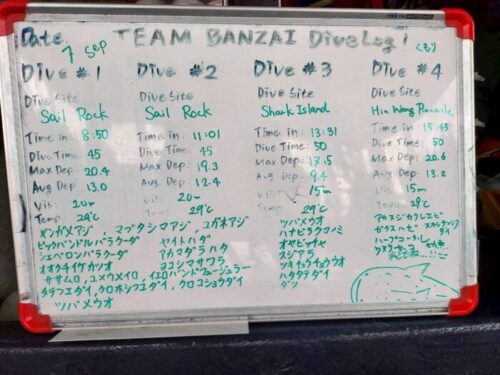 Date 7 Sep TEAM BANZAI Dive Log!
Dive #1
Dive Site
Sail Rock
Time in: 8:50
Dive Time 45
Max Dep: 20.4
Avg Dep: 13.0
Vis: 20m
Temp 29°C
Dive #2
Dive Site
Sail Rock
Time in: 11:01
Dive Time: 45
Max Dep: 19.3
Avg Dep: 12.4
Vis 20m
Temp: 29°C
Dive #3
Dive Site
Shark Island
Time in: 13:31
Dive Time: 50
Max Dep: 18.5
Avg Dep: 9.4
Vis 15m
29°C
Dive #4
Dive Site
Hin Wong Pinnacle
Time in: 15:45
Dive Time: 50
Max Dep: 20.6
Avg Dep: 13.2
Vis 15m
Temp 29°C
メンガメアジ、マブタシマアジ、ユガネアジ
ピックハンドルバラクーダ ヤイトハタ
シェベロンバラクーダ アカマダラハタ
オオクチイケカツオ ヨコシマサワラ
ササムロ、ユメウメイロ、イエローバンドフュージュラー
タテフエダイ、クロホシフエダイ、クロコショウダイ
ツバメウオ
ツバメウオ
ハナビラクマノミ
オヤビッチャ
スジアラ
ツキチョウチョウウオ
ハタタテダイ
ダツ
アカスジカクレエビ
ガラスハゼ